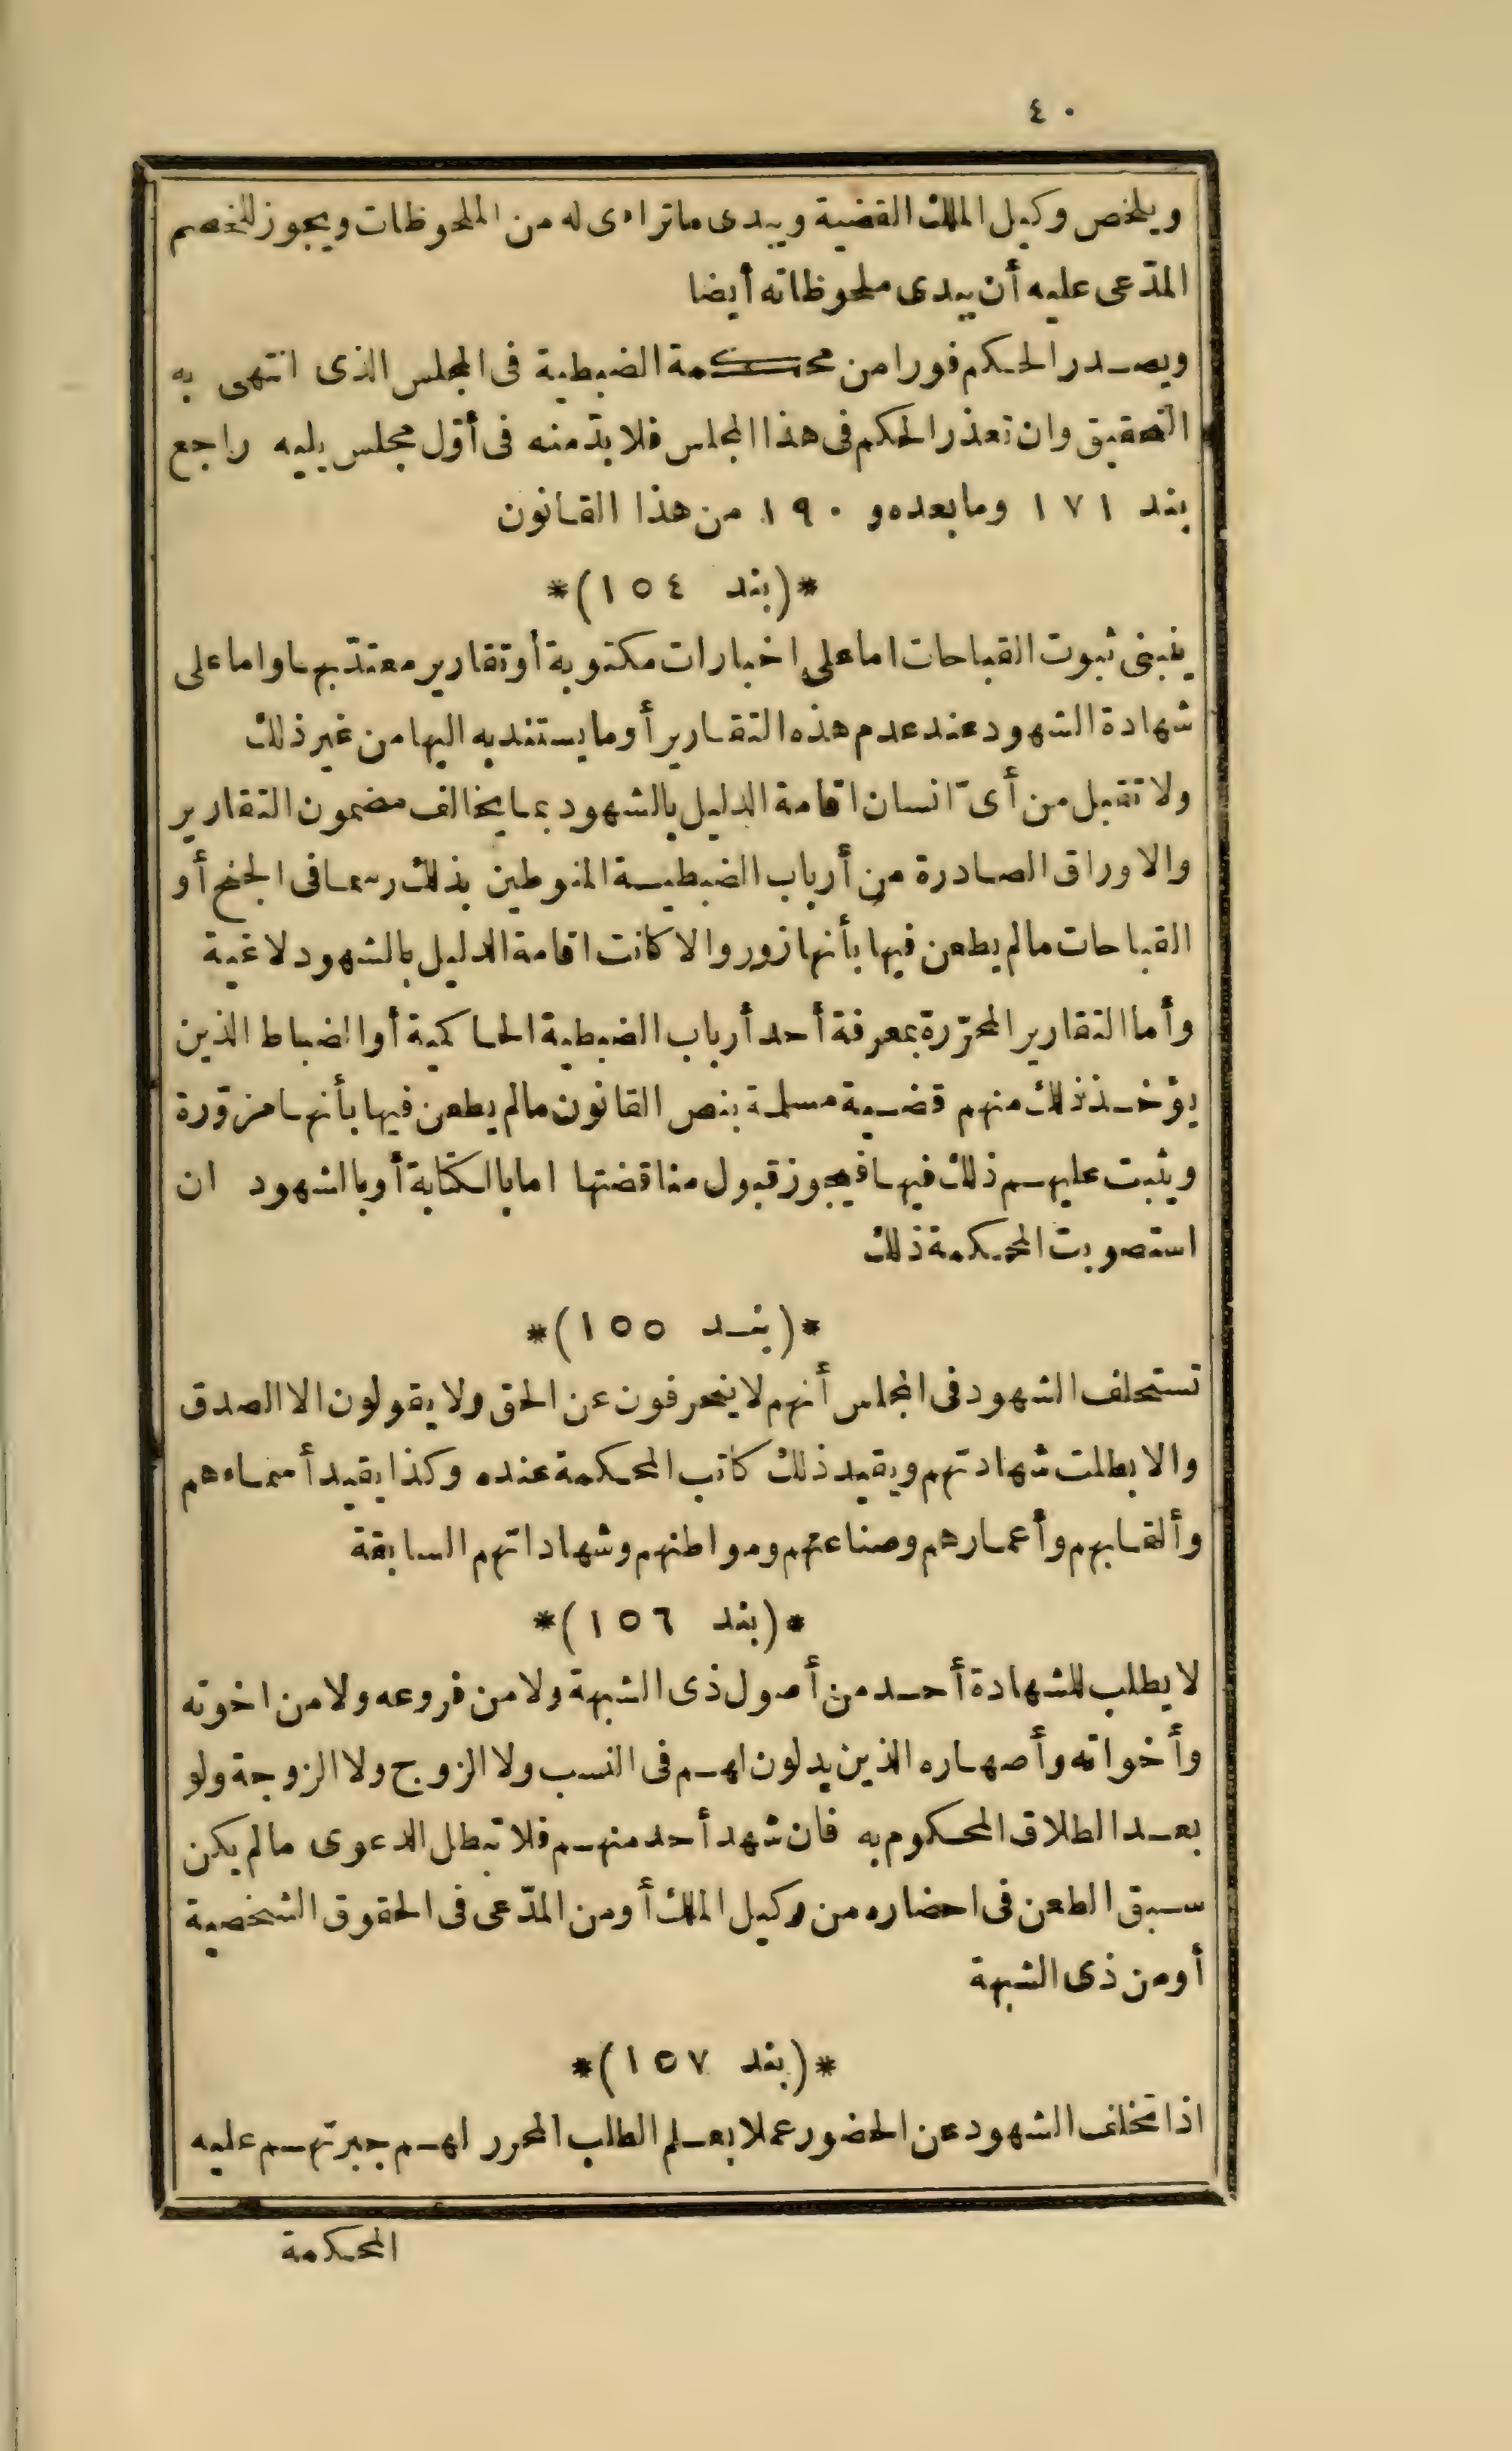 ٤٠
ويلخص وكيل الملك القضية ويبدى ماتراءى له من الملحوظات ويجوز للخصم
المدّعى عليه أن يبدى ملحوظاته أيضا
ويصدر الحكم فورا من محكمة الضبطية فى المجلس الذى انتهى به
التحقيق وان تعذر الحكم فى هذا المجلس فلا بدّ منه فى أوّل مجلس يليه راجع
بند ١٧١ وما بعده و ١٩٠ من هذا القانون
*(بند ١٥٤)*
ينبنى ثبوت القباحات اما على اخبارات مكتوبة أو تقارير معتدّ بها واما على
شهادة الشهود عند عدم هذه التقارير أو ما يستند به اليها من غير ذلك
ولا تقبل من أىّ انسان اقامة الدليل بالشهود بما يخالف مضمون التقارير
والاوراق الصادرة من أرباب الضبطية المنوطين بذلك رسما فى الجنح أو
القباحات مالم يطعن فيها بأنها زور والا كانت اقامة الدليل بالشهود لاغية
وأما التقارير المحرّرة بمعرفة أحد أرباب الضبطية الحاكمية أو الضباط الذين
يؤخذ ذلك منهم قضية مسلمة بنص القانون مالم يطعن فيها بأنها مزوّرة
ويثبت عليهم ذلك فيها فيجوز قبول مناقضتها اما بالكتابة أو بالشهود ان
استصوبت المحكمة ذلك
*(بند ١٥٥)*
تستحلف الشهود فى المجلس أنهم لا ينحرفون عن الحق ولا يقولون الا الصدق
والا بطلت شهادتهم ويقيد ذلك كاتب المحكمة عنده وكذا يقيد أسماءهم
وألقابهم وأعمارهم وصناعتهم ومواطنهم وشهاداتهم السابقة
*(بند ١٥٦)*
لا يطلب للشهادة أحد من أصول ذى الشبهة ولا من فروعه ولا من اخوته
وأخواته وأصهاره الذين يدلون لهم فى النسب ولا الزوج ولا الزوجة ولو
بعد الطلاق المحكوم به فان شهد أحد منهم فلا تبطل الدعوى مالم يكن
سبق الطعن فى احضاره من وكيل الملك أو من المدّعى فى الحقوق الشخصية
أو من ذى الشبهة
*(بند ١٥٧)*
اذا تخلف الشهود عن الحضور عملا بعلم الطلب المحرر لهم جبرتهم عليه
المحكمة